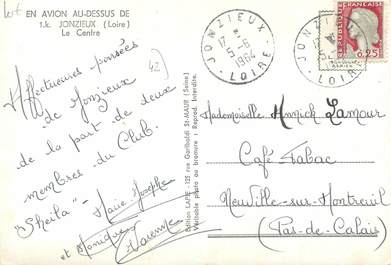 Lot
EN AVION AU-DESSUS DE
1.k. JONZIEUX (Loire)
Le Centre
42
Affectueuses pensées
de Jonzieux
de la part de deux
membres du Club.
"Sheila" Marie-Josèphe
et Monique
Varenne
Edition LAPIE - 125 rue Garibaldi St-MAUR (Seine)
Véritable photo au bromure : Reprod. Interdite.
JONZIEUX
17 H
5-6
1964
LOIRE
JONZIEUX
LOIRE
REPUBLIQUE FRANÇAISE
0,25
Mademoiselle Annick Lamour
Café Tabac
Neuville-sous-Montreuil
(Pas-de-Calais)